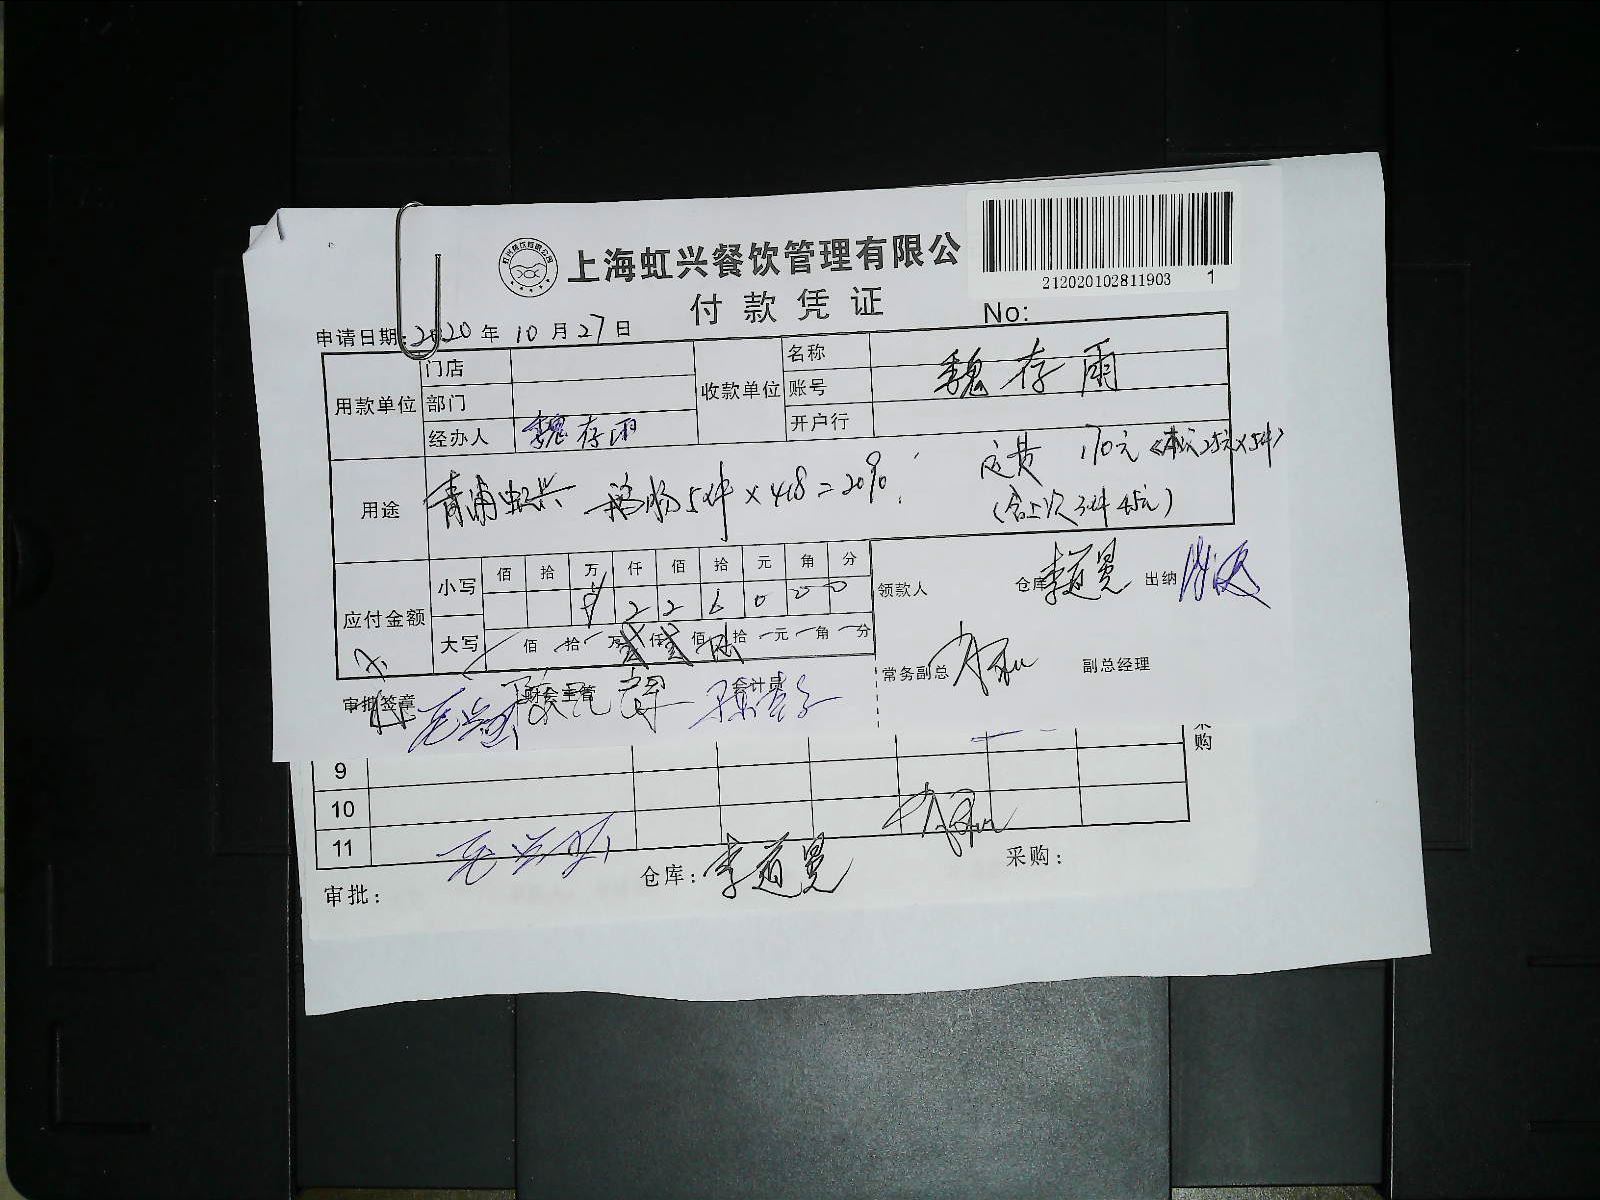 上海虹兴餐饮管理有限公
212020102811903 1
付款凭证
No:
申请日期:2020年10月27日
用款单位 门店 收款单位 名称
部门 账号 魏存雨
经办人 魏存雨 开户行
用途 青浦虹兴 鹅肠5件×418=2090 运费 170元(本次25元×5件)
(含上次3件45元)
应付金额 小写 佰 拾 万 仟 佰 拾 元 角 分
¥ 2 2 6 0 0 0
大写 佰 拾 万 贰 仟 贰 佰 陆 拾 元 角 分
领款人 仓库 李道晃 出纳
审批签章 财会主管 会计员
常务副总 副总经理
采购
9
10
11
审批: 仓库: 李道晃 采购: